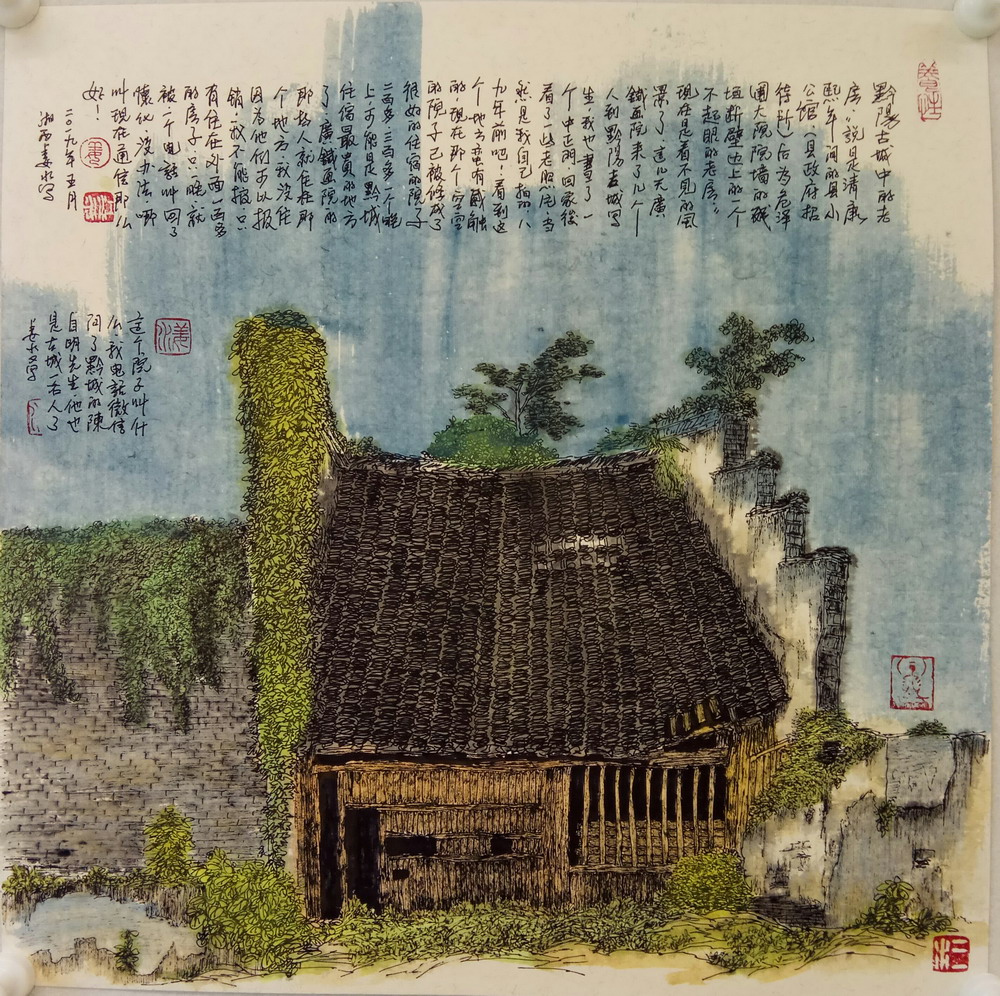 黔陽古城中的老
房。說是清康
熙年间的县小
公馆（县政府招
待所）后为危洋
圃大院院墙的残
垣断壁也上的一个
不起眼的老房。
现在是看不見的風
景了。這几天廣
鐵畫院来了几个
人到黔陽古城写
生。我也畫了一
个中正門。回家後
看了些老照片。当
然是我自己拍的八
九年前吧！看到这
个地方蛮有感触
的。现在那个空空
的院子已被修成了
很好的住宿的院子
二百多三百多一个晚
上。可能是黔城
住宿最貴的地方
了。廣鐵畫院的
那些人就住在那
个地方。我没住
因为他们可以报
销。我不能报。只
有住在外面一百多
的房子。只一晚就
被一个电話叫回了
懷化。没办法。哪
叫現在通信那么
好！
二〇一九年五月
湘西姜水写
這个院子叫什
么。我电話微信
问了黔城的陳
自明先生。他也
是古城一老人了
姜水又字